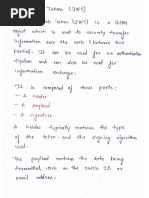 Token (JWT)
Web Token (JWT) is a JSON
object which is used to securely transfer
information over the web (between two
parties). It can be used for an authentication
system and can also be used for
information exchange.
It is composed of three parts:
- A header
- A payload
- signature
A header typically contains the type
of the token and the signing algorithm
used.
The payload contains the data being
transmitted, such as the user's ID or
email address.